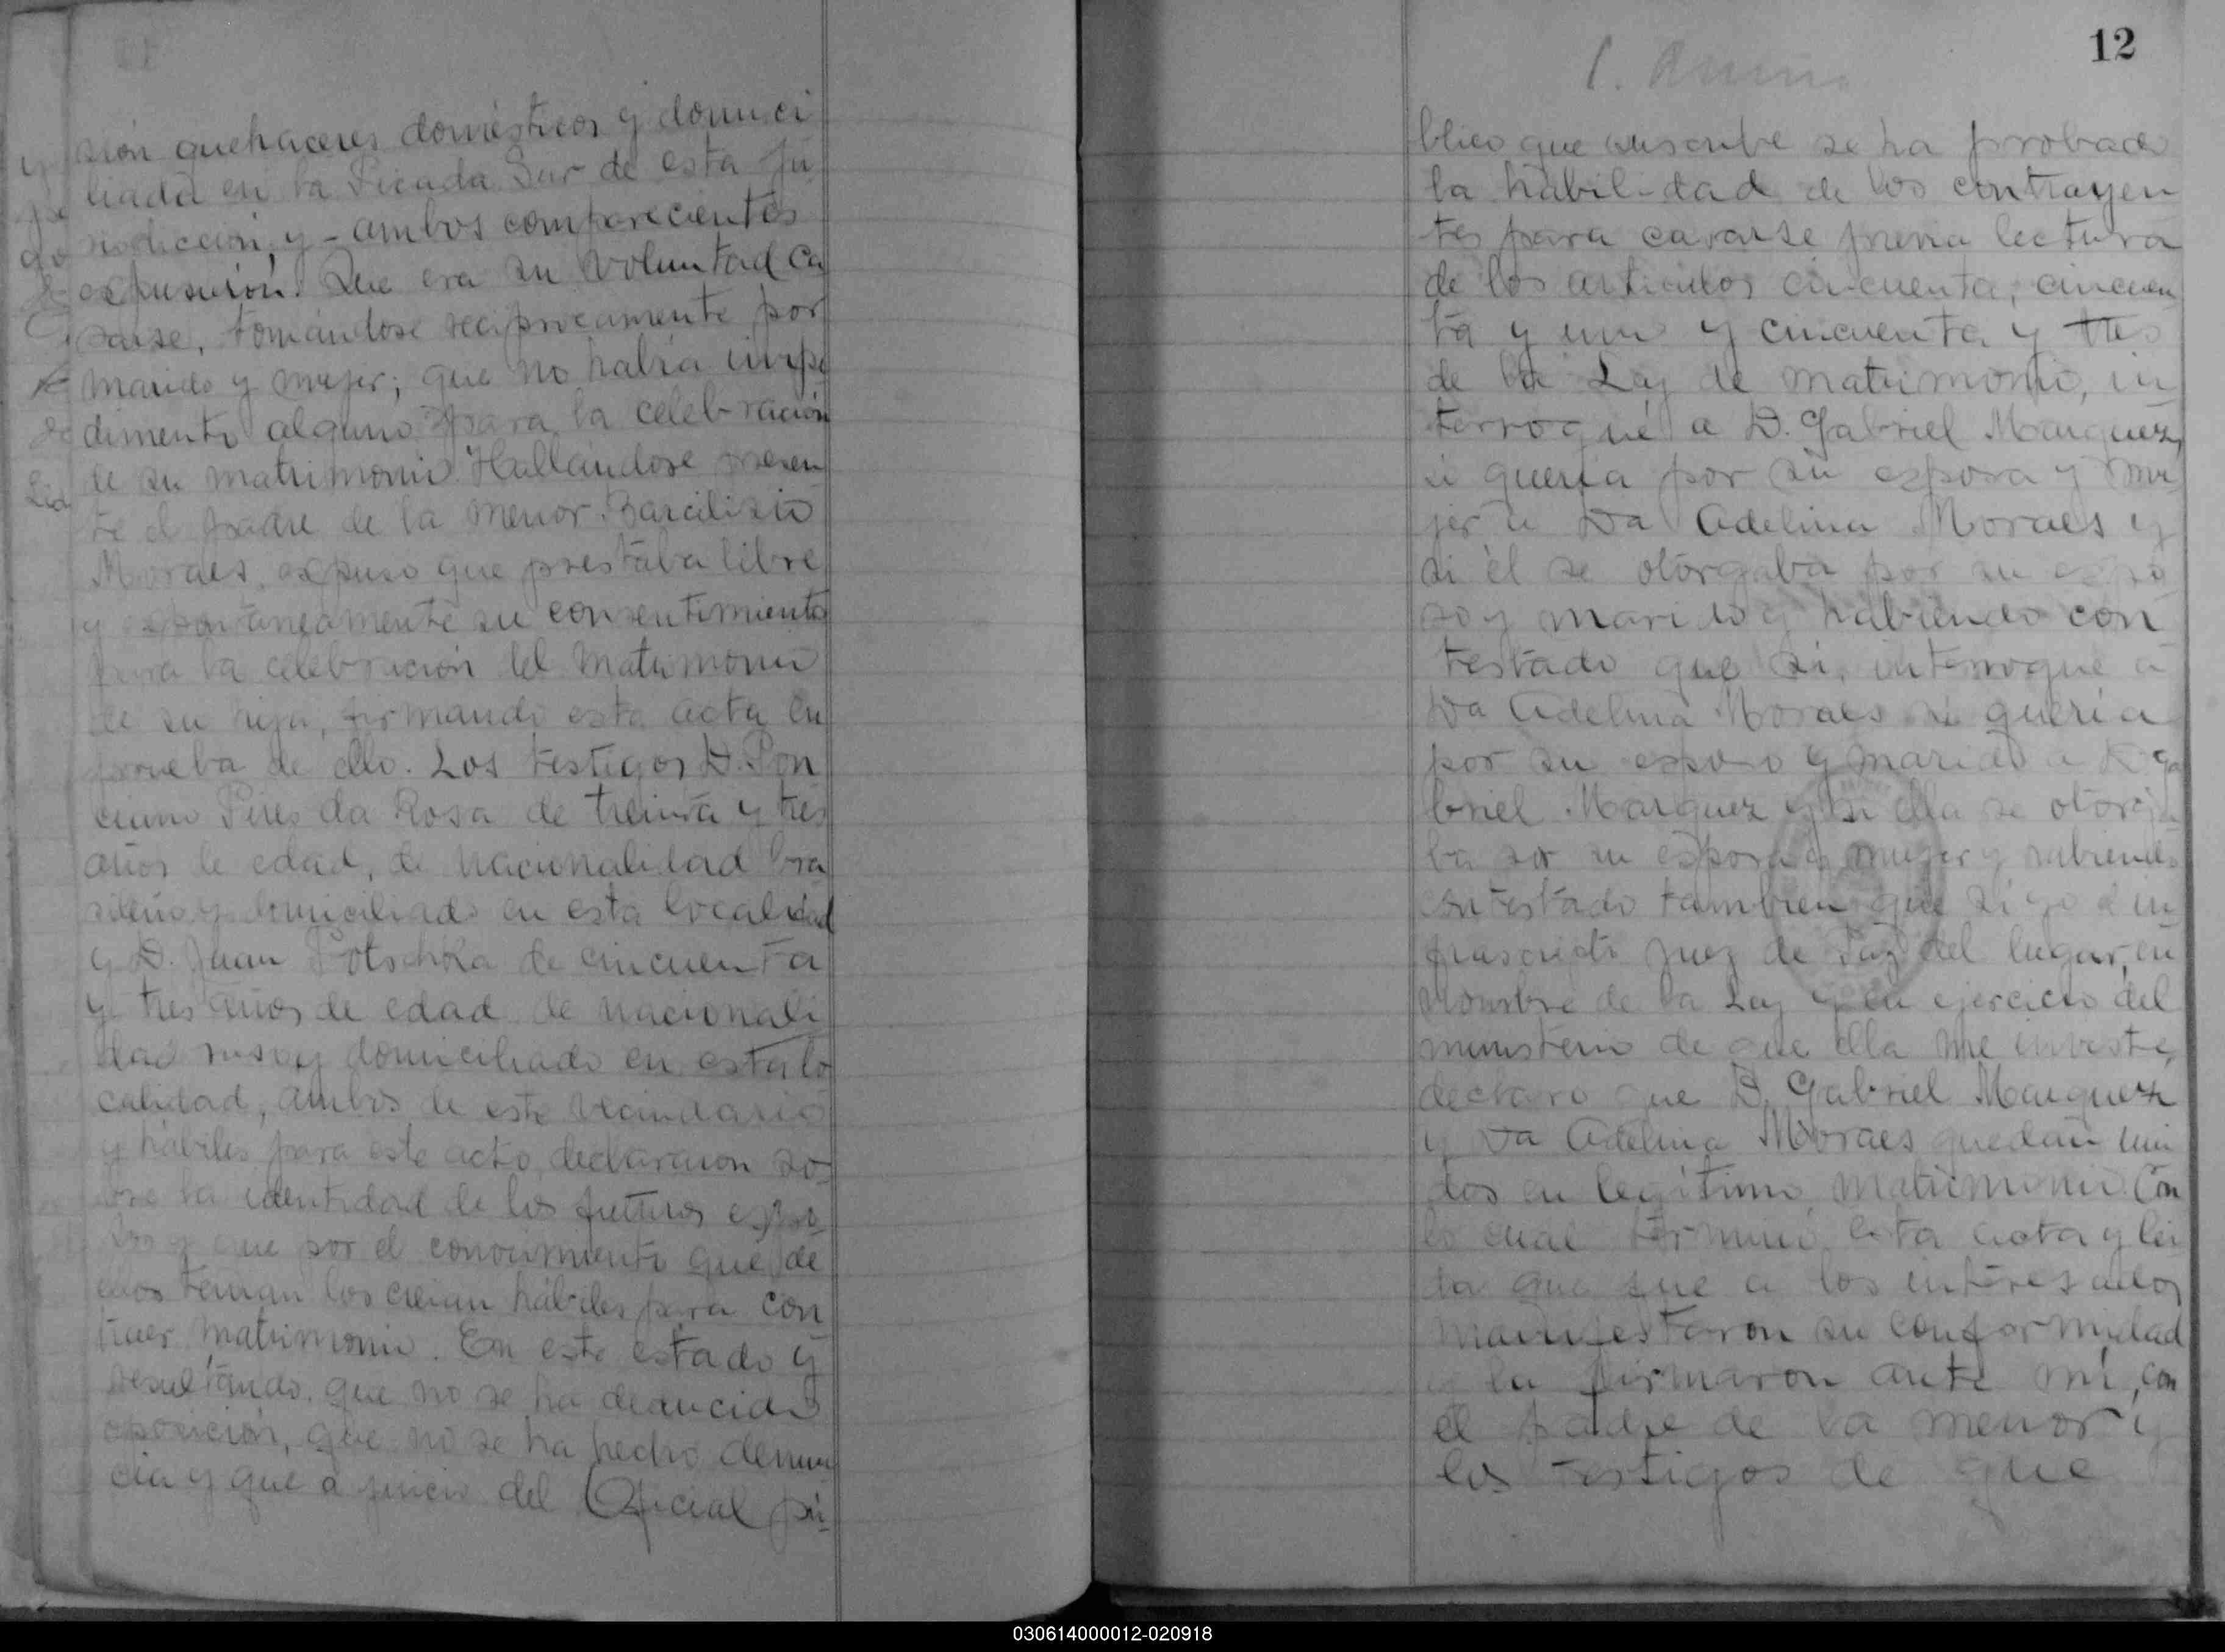 sión quehaceres domésticos y domici
liada en la Picada Sur de esta ju
risdicción, y - ambos comparecientes
expusieron: Que era su voluntad ca
sarse, tomándose reciprocamente por
marido y mujer; que no había impe
dimento alguno para la celebración
de su matrimonio. Hallándose presen
te el padre de la menor Barcilisio
Moraes, expuso que prestaba libre
y espontaneamente su consentimiento
para la celebración del matrimonio
de su hija, firmando esta acta en
prueba de ello. Los testigos D. Pon
ciano Pires da Rosa de treinta y tres
años de edad, de nacionalidad bra
sileño y domiciliado en esta localidad
y D. Juan Potschka de cincuenta
y tres años de edad de nacionali
dad ruso y domiciliado en esta lo
calidad, ambos de este vecindario
y hábiles para este acto, declararon so-
bre la identidad de los futuros espo-
sos y que por el conocimiento que de
ellos tenian los creian hábiles para con
traer matrimonio. En este estado y
resultando, que no se ha deducido
oposición, que no se ha hecho denun
cia y que a juicio del Oficial pú-
12
blico que suscribe se ha probado
la habilidad de los contrayen
tes para casarse previa lectura
de los articulos cincuenta, cincuen
ta y uno y cincuenta y tres
de la Ley de matrimonio, in
terrogué a D. Gabriel Marquez,
si quería por su esposa y mu
jer a Da Adelina Moraes y
si él se otorgaba por su espo
so y marido y habiendo con
testado que si, interrogue a
Da Adelina Moraes si quería
por su esposo y marido a D. Ga
briel Marquez y si ella se otorga
ba por su esposa y mujer y habiendo
contestado tambien que si yo el in
frascrito Juez de Paz del lugar, en
nombre de la Ley y en ejercicio del
ministerio de que ella me inviste,
declaro que D. Gabriel Marquez
y Da Adelina Moraes quedan uni
dos en legítimo matrimonio. Con
lo cual terminó esta acta y lei
da que fue a los interesados
manifestaron su conformidad
y la firmaron ante mí, con
el padre de la menor y
los testigos de que
030614000012-020918